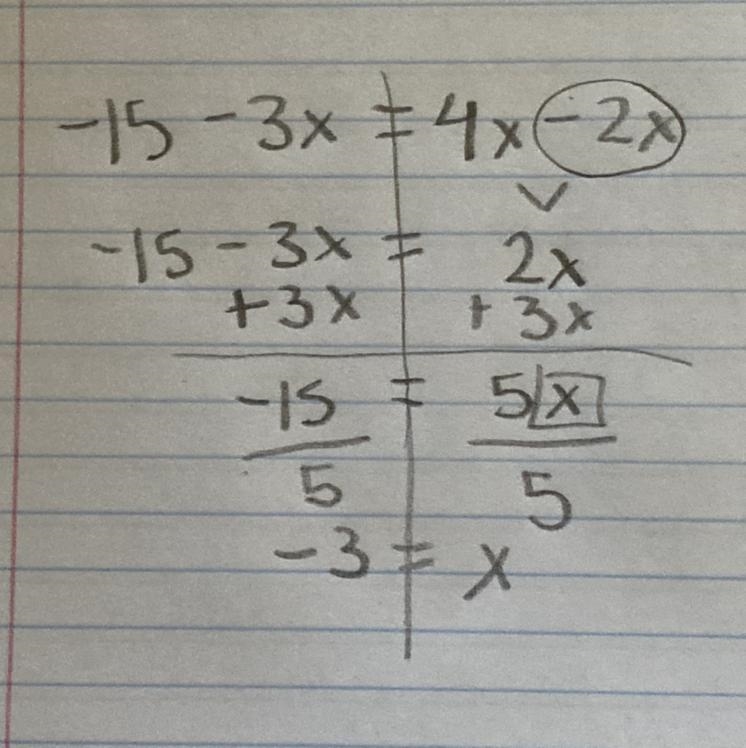 -15 - 3x = 4x - 2x
-15 - 3x = 2x
+3x + 3x
-15 = 5x
5 5
-3 = x